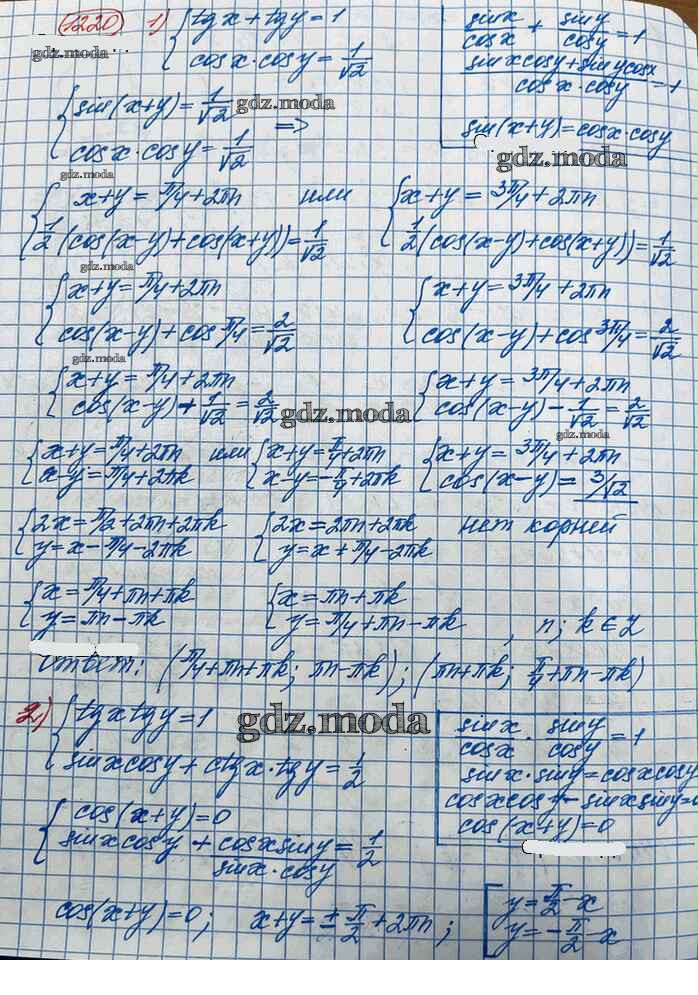 1220 1) { tg x + tg y = 1
cos x · cos y = 1/√2
sin x/cos x + sin y/cos y = 1
(sin x cos y + sin y cos x)/(cos x · cos y) = 1
sin(x+y) = cos x · cos y
gdz.moda
{ sin(x+y) = 1/√2
cos x · cos y = 1/√2 =>
gdz.moda
gdz.moda
gdz.moda
{ x+y = π/4 + 2πn или { x+y = 3π/4 + 2πn
1/2 (cos(x-y) + cos(x+y)) = 1/√2 1/2 (cos(x-y) + cos(x+y)) = 1/√2
gdz.moda
{ x+y = π/4 + 2πn { x+y = 3π/4 + 2πn
cos(x-y) + cos π/4 = 2/√2 cos(x-y) + cos 3π/4 = 2/√2
gdz.moda
{ x+y = π/4 + 2πn { x+y = 3π/4 + 2πn
cos(x-y) + 1/√2 = 2/√2 cos(x-y) - 1/√2 = 2/√2
gdz.moda
gdz.moda
{ x+y = π/4 + 2πn или { x+y = π/4 + 2πn { x+y = 3π/4 + 2πn
x-y = π/4 + 2πk x-y = -π/4 + 2πk cos(x-y) = 3/√2
{ 2x = π/2 + 2πn + 2πk { 2x = 2πn + 2πk нет корней
y = x - π/4 - 2πk y = x + π/4 - 2πk
{ x = π/4 + πn + πk { x = πn + πk
y = πn - πk y = π/4 + πn - πk , n; k ∈ Z
Ответ: (π/4 + πn + πk; πn - πk); (πn + πk; π/4 + πn - πk)
2) { tg x tg y = 1
sin x cos y + ctg x · tg y = 1/2
gdz.moda
sin x/cos x · sin y/cos y = 1
sin x · sin y = cos x cos y
cos x cos y - sin x sin y = 0
cos(x+y) = 0
{ cos(x+y) = 0
sin x cos y + (cos x sin y)/(sin x · cos y) = 1/2
cos(x+y) = 0; x+y = ± π/2 + 2πn; [ y = π/2 - x
y = -π/2 - x